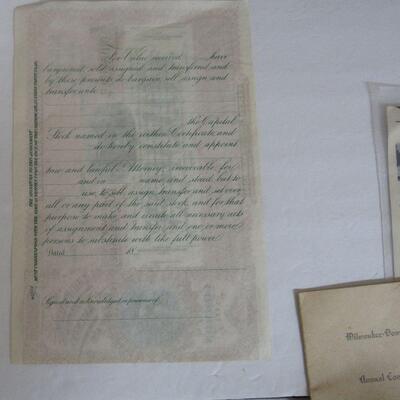 For Value received have
bargained, sold, assigned and transferred and
by these presents do bargain, sell, assign and
transfer unto
the Capital
Stock named in the within Certificate, and
do hereby constitute and appoint
true and lawful Attorney, irrevocable for
and in name and stead but to
use, to sell, assign, transfer and set over
all or any part of the said stock, and for that
purpose to make, and execute all necessary acts
of assignment and transfer and one or more
persons to substitute with like full power.
Dated 18
Signed and acknowledged in presence of
THE SIGNATURE TO THIS ASSIGNMENT
Milwaukee-
Annual